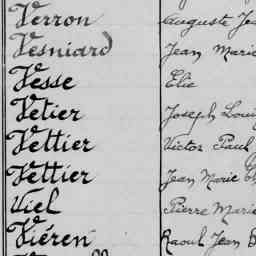 Verron Auguste
Vesniard Jean Marie
Vesse Elie
Vetier Joseph
Vettier Victor Paul
Vettier Jean Marie
Viel Pierre Marie
Viéren Raoul Jean